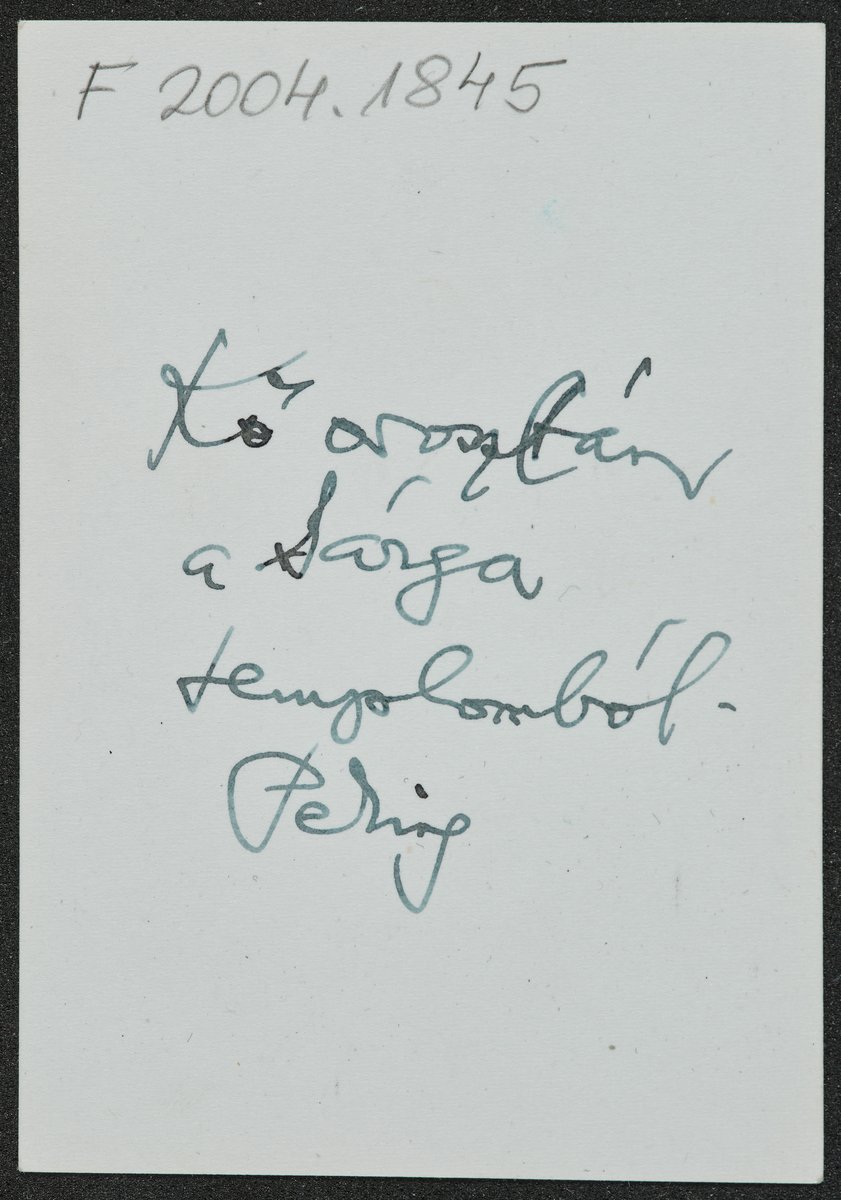 F 2004.1845
Kő oroszlán
a Sárga
templomból.
Peking